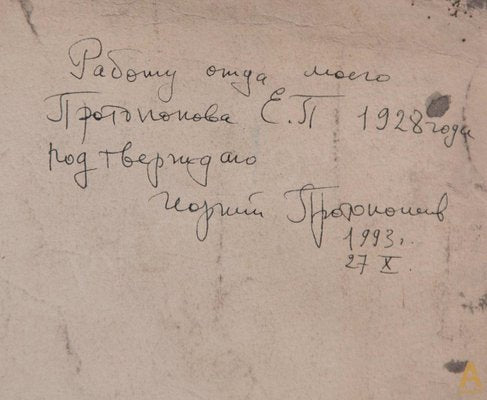 Работу отца моего
Протопопова Е.П 1928 года
подтверждаю
Протопопов
1993г.
27 X.